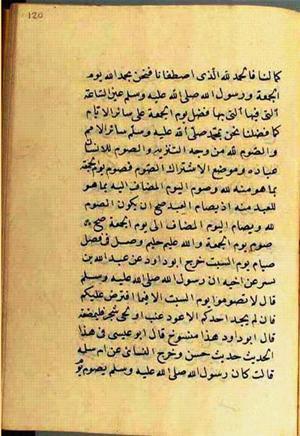 120
كمالنا فالحمد لله الذي اصطفانا فنحن بحمد الله يوم
الجمعة ورسول الله صلى الله عليه وسلم عين الساعة
التي فيها التي بها فضل يوم الجمعة على سائر الايام
كما فضلنا نحن بمحمد صلى الله عليه وسلم سائر الامم
والصوم لله من وجه التنزيه والصوم للانسان
عبادة وموضع الاشتراك الصوم فصوم يوم الجمعة
بما هو منه لله وصوم اليوم المضاف اليه بما هو
للعبد منه اذ بصيام العبد صح ان يكون الصوم
لله وبصيام اليوم المضاف الى يوم الجمعة صح
صوم يوم الجمعة والله عليم حليم وصل في فصل
صيام يوم السبت خرج ابو داود عن عبد الله بن
بسر عن اخيه ان رسول الله صلى الله عليه وسلم
قال لا تصوموا يوم السبت الا فيما افترض عليكم
فان لم يجد احدكم الا عود عنب او لحى شجر فليمضغه
قال ابو داود هذا منسوخ قال ابو عيسى في هذا
الحديث حديث حسن وخرج النسائي عن ام سلمة
قالت كان رسول الله صلى الله عليه وسلم يصوم يوم